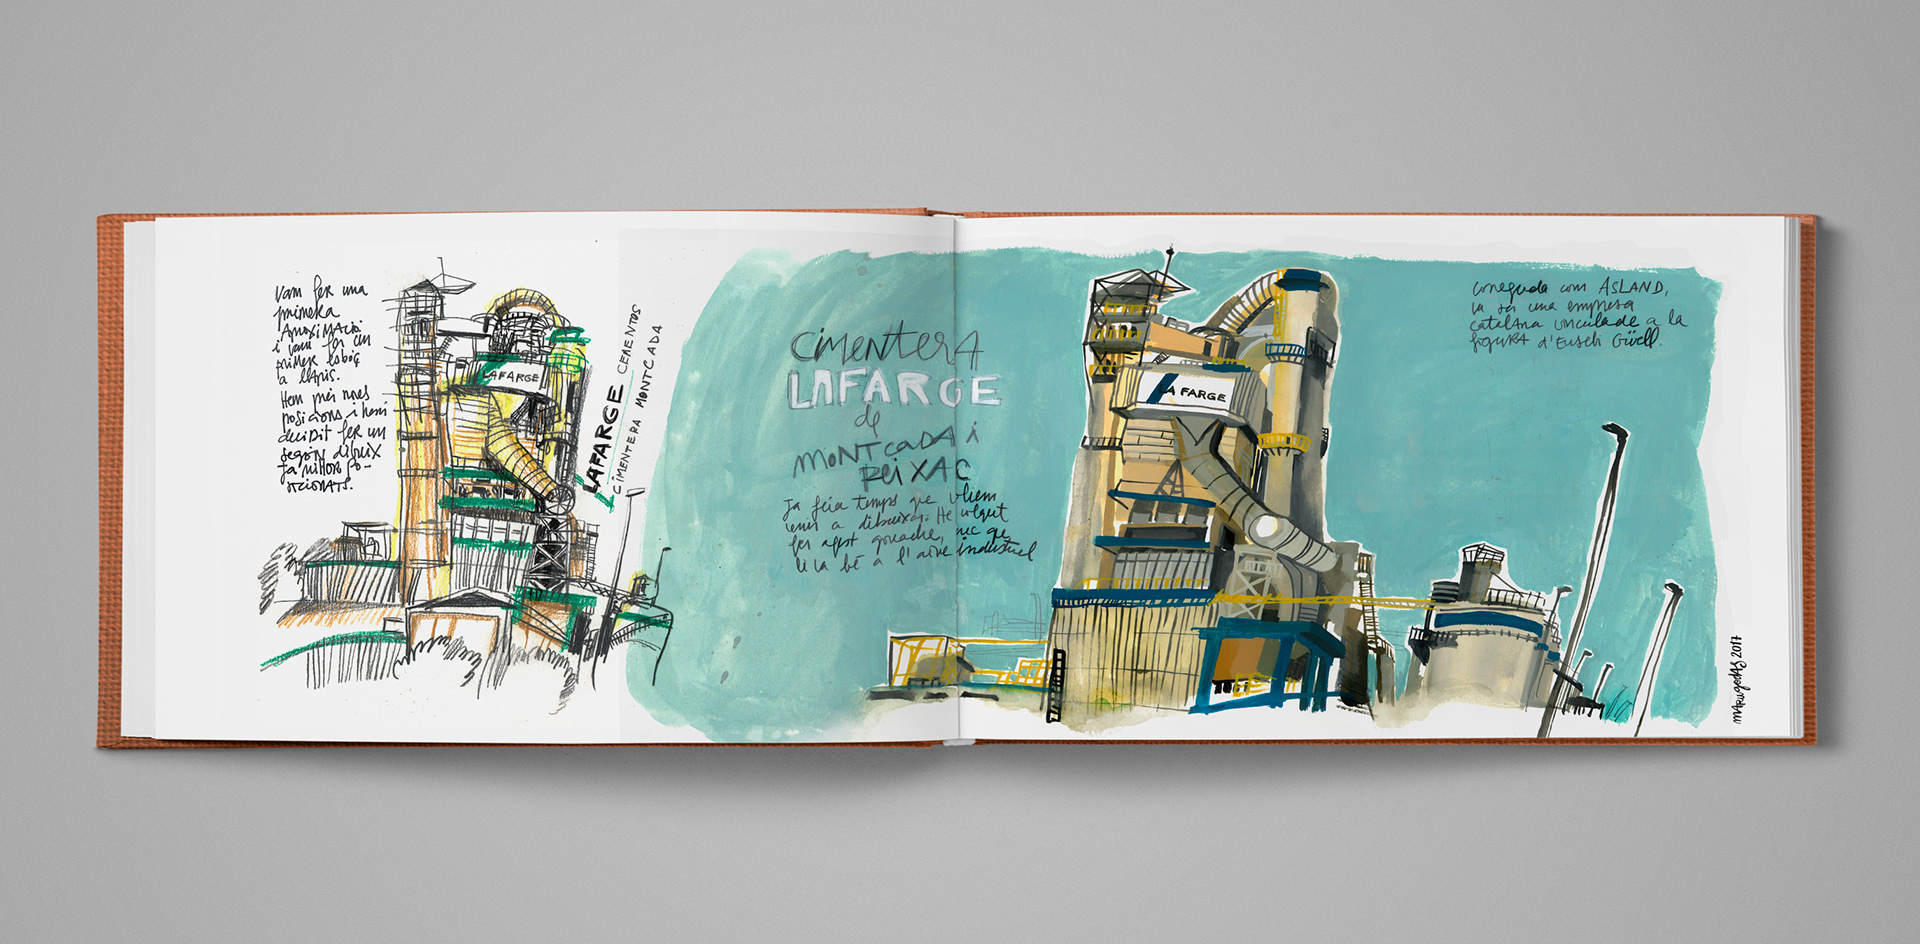 Vam fer una
primera
Aproximació
i vam fer un
primer esboç
a llapis.
Hem près noves
posicions i hem
decidit fer un
segon dibuix
ja millor po-
sicionats.
LAFARGE
LAFARGE CEMENTOS
CIMENTERA MONTCADA
cimentera
LAFARGE
de
MONTCADA i
REIXAC
Ja feia temps que volíem
venir a dibuixar. He volgut
fer aquest gouache, crec que
li va bé a l'aire industrial
LA FARGE
coneguda com ASLAND,
va ser una empresa
catalana vinculada a la
figura d'Eusebi Güell.
MARUGODAS 2017